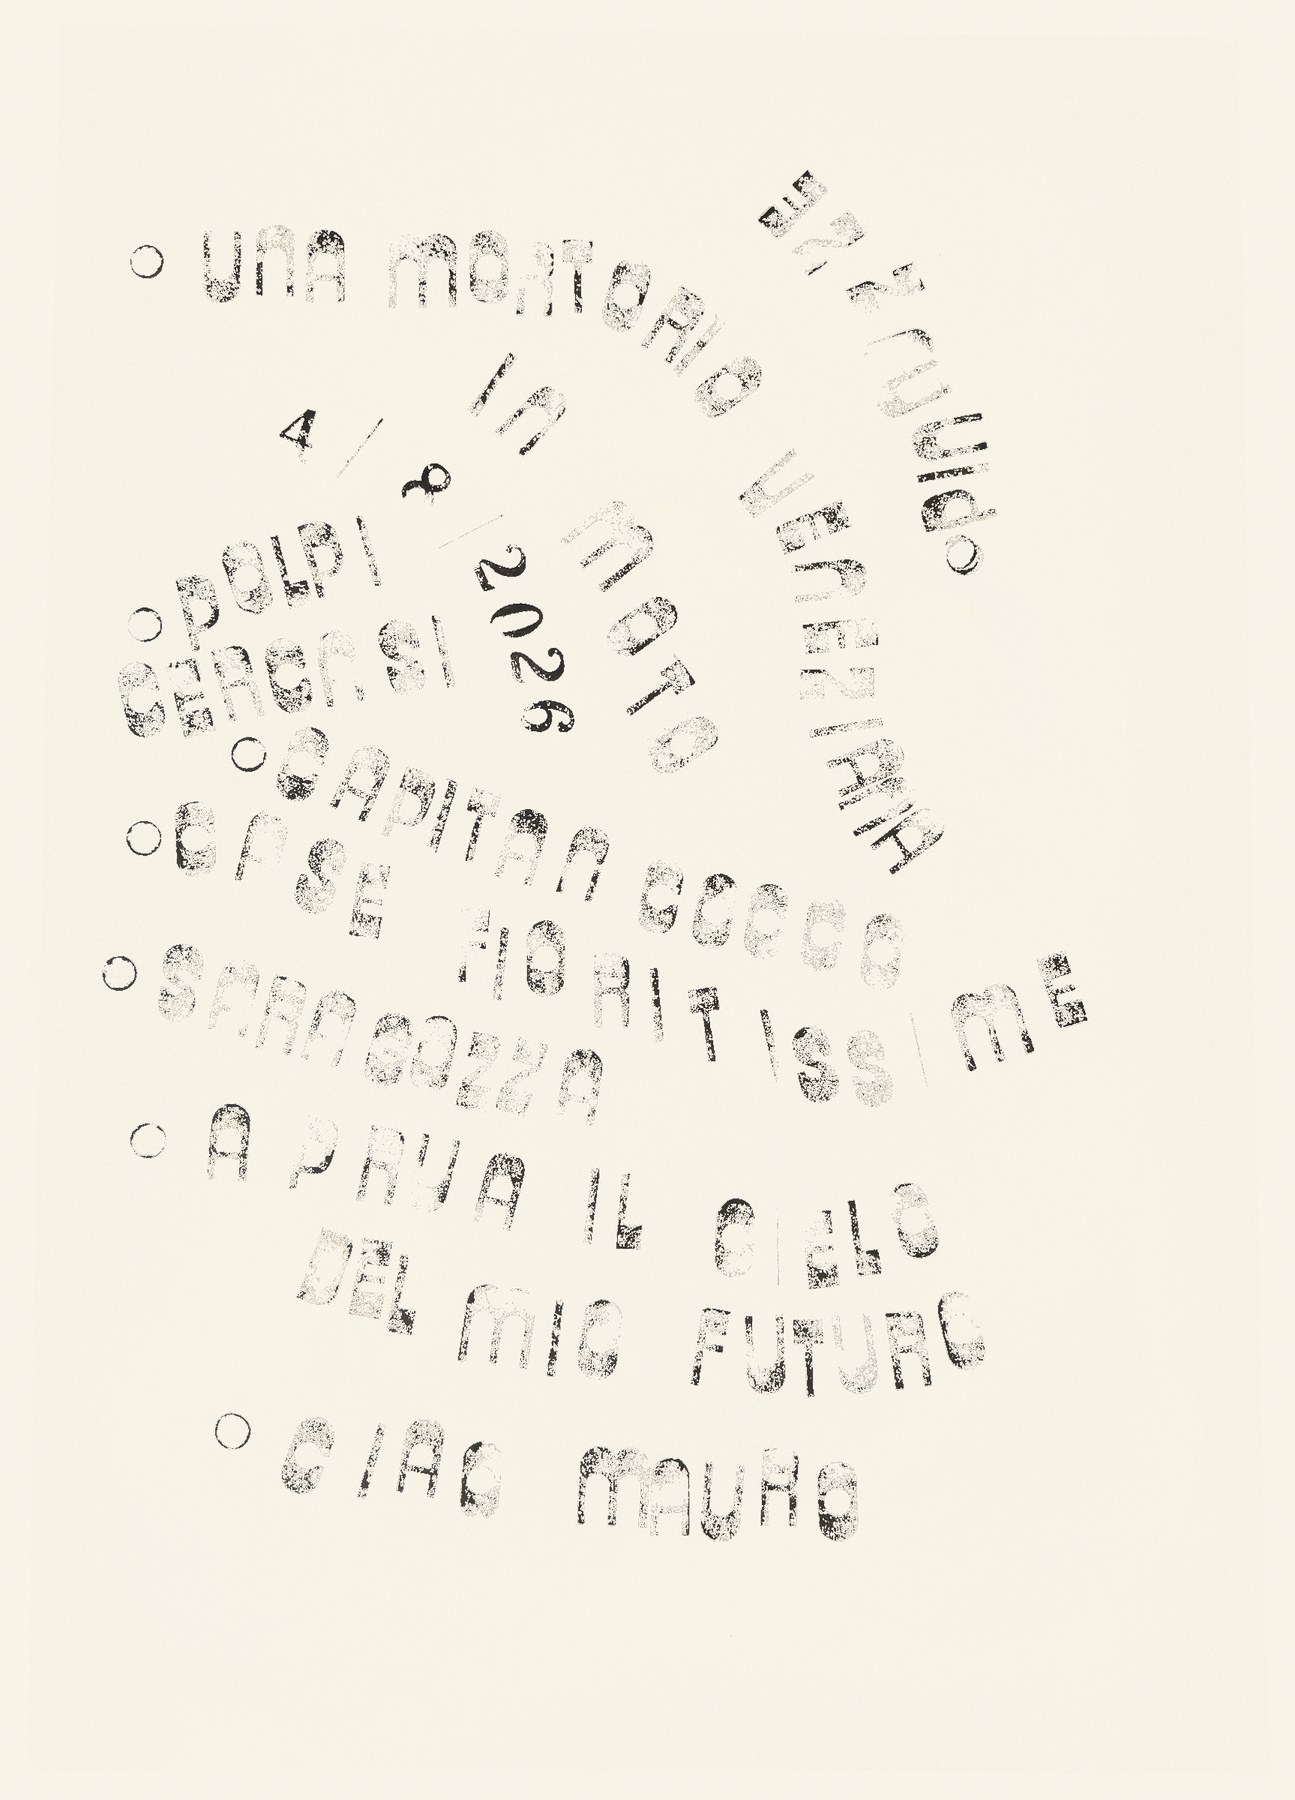 UNA MORTORIO VENEZIANA
IN MOTO
4/9/2026
POLPI
CERCASI
CAPITAN COCCO
CASE FIORITISSIME
SARAGOZZA
A PRUA IL CIELO
DEL MIO FUTURO
CIAO MAURO